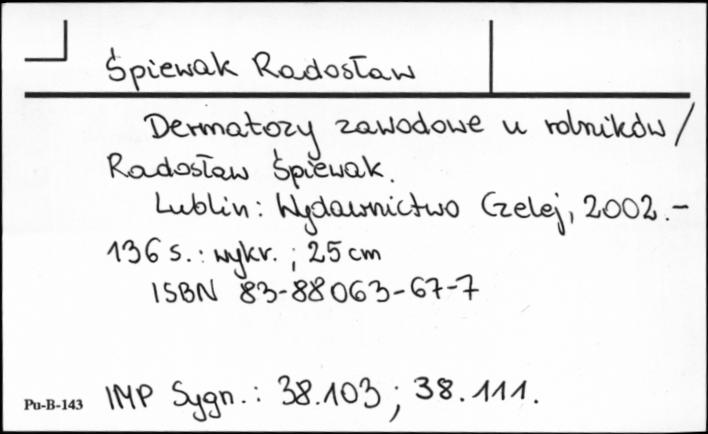 Śpiewak Radosław
Dermatozy zawodowe u rolników /
Radosław Śpiewak.
Lublin : Wydawnictwo Czelej, 2002. -
136 s. : wykr. ; 25 cm
ISBN 83-88063-67-7
Pu-B-143 IMP Sygn. : 38.103 ; 38.111.